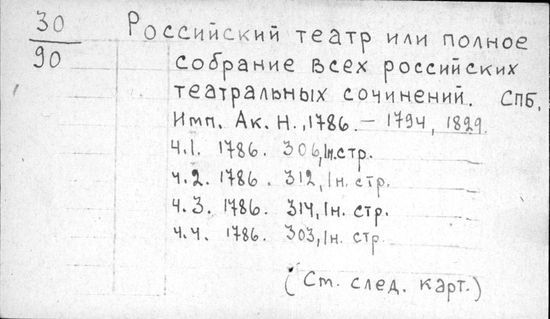 30
90
Российский театр или полное
собрание всех российских
театральных сочинений. СПб,
Имп. Ак. Н., 1786. – 1794, 1829.
ч.1. 1786. 306, 1н. стр.
ч.2. 1786. 312, 1н. стр.
ч.3. 1786. 314, 1н. стр.
ч.4. 1786. 303, 1н. стр.
(См. след. карт.)